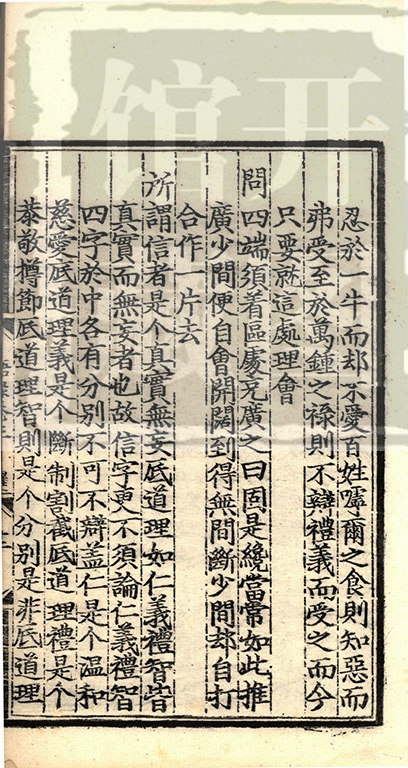 忍於一牛而却不愛百姓嘑爾之食則知惡而
弗受至於萬鍾之禄則不辨禮義而受之而今
只要就這處理會
問四端須着區處充廣之曰固是纔當常如此推
廣少間便自會開闊到得無間斷少間却自打
合作一片去
所謂信者是个真實無妄底道理如仁義禮智皆
真實而無妄者也故信字更不須論仁義禮智
四字於中各有分別不可不辯盖仁是个温和
慈愛底道理義是个斷制割截底道理禮是个
恭敬撙節底道理智則是个分別是非底道理